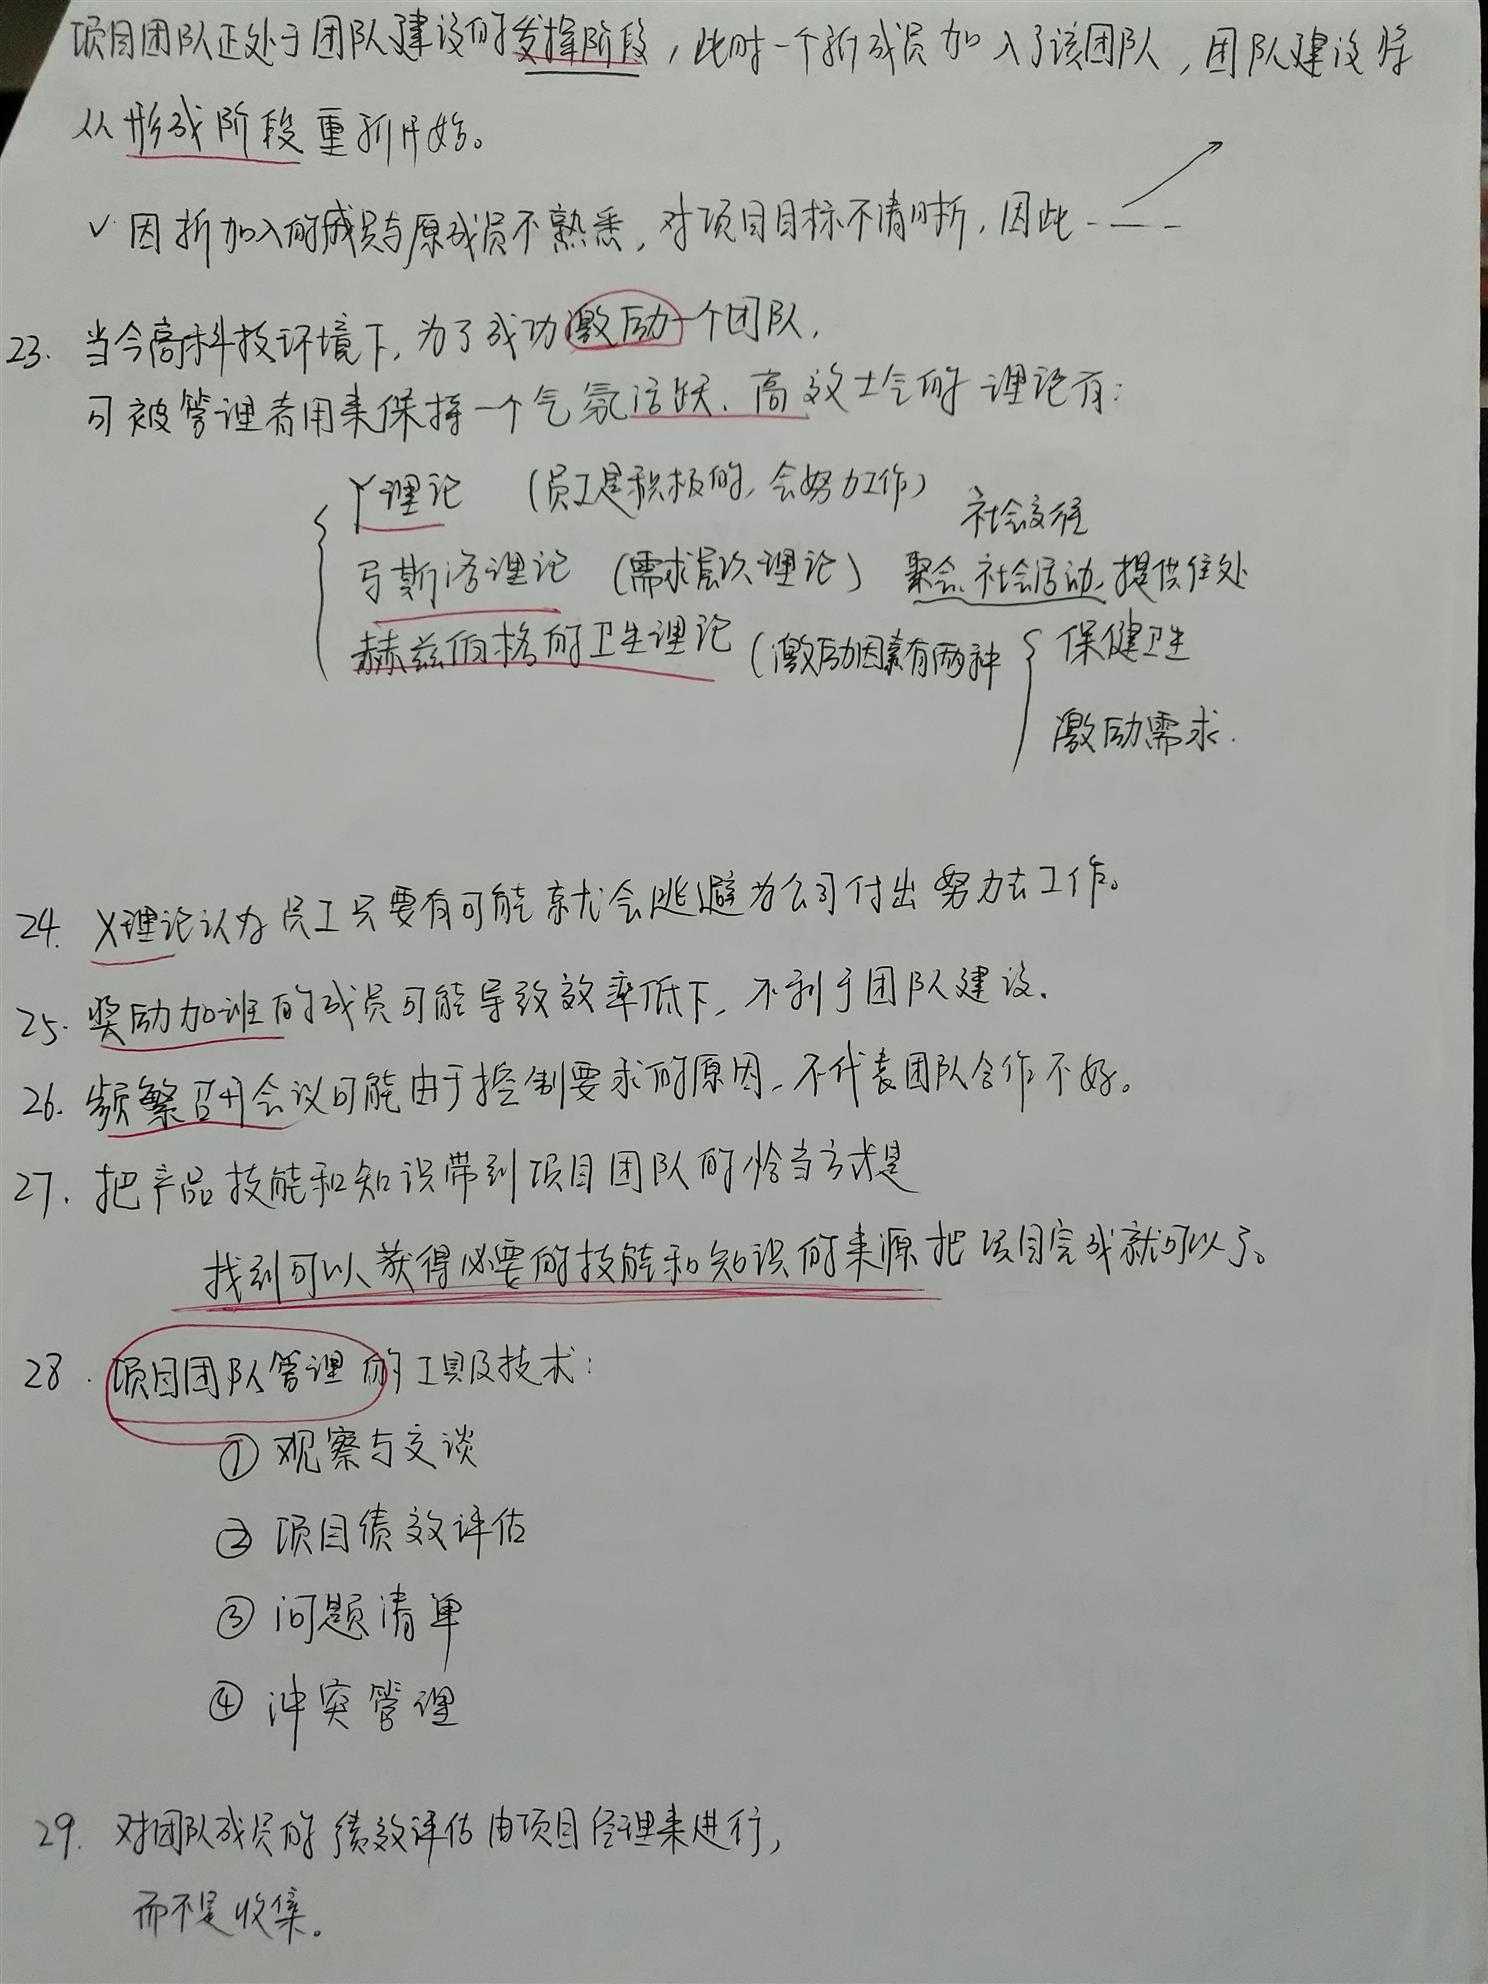 项目团队正处于团队建设的发挥阶段，此时一个新成员加入了该团队，团队建设将
从形成阶段重新开始。
√ 因新加入的成员与原成员不熟悉，对项目目标不清晰，因此---
23. 当今高科技环境下，为了成功激励一个团队，
可被管理者用来保持一个气氛活跃、高效士气的理论有：
Y理论 （员工是积极的，会努力工作）
社会交往
马斯洛理论 （需求层次理论） 聚会、社会活动、提供住处
赫兹伯格的卫生理论 （激励因素有两种 保健卫生
激励需求.
24. X理论认为员工只要有可能就会逃避为公司付出努力去工作。
25. 奖励加班的成员可能导致效率低下，不利于团队建设.
26. 频繁召开会议可能由于控制要求的原因，不代表团队合作不好。
27. 把产品技能和知识带到项目团队的恰当方式是
找到可以获得必要的技能和知识的来源把项目完成就可以了。
28. 项目团队管理的工具及技术：
① 观察与交谈
② 项目绩效评估
③ 问题清单
④ 冲突管理
29. 对团队成员的绩效评估由项目经理来进行，
而不是收集。